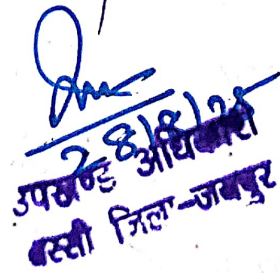 28/8/25
उपखण्ड अधिकारी
बस्सी जिला-जयपुर